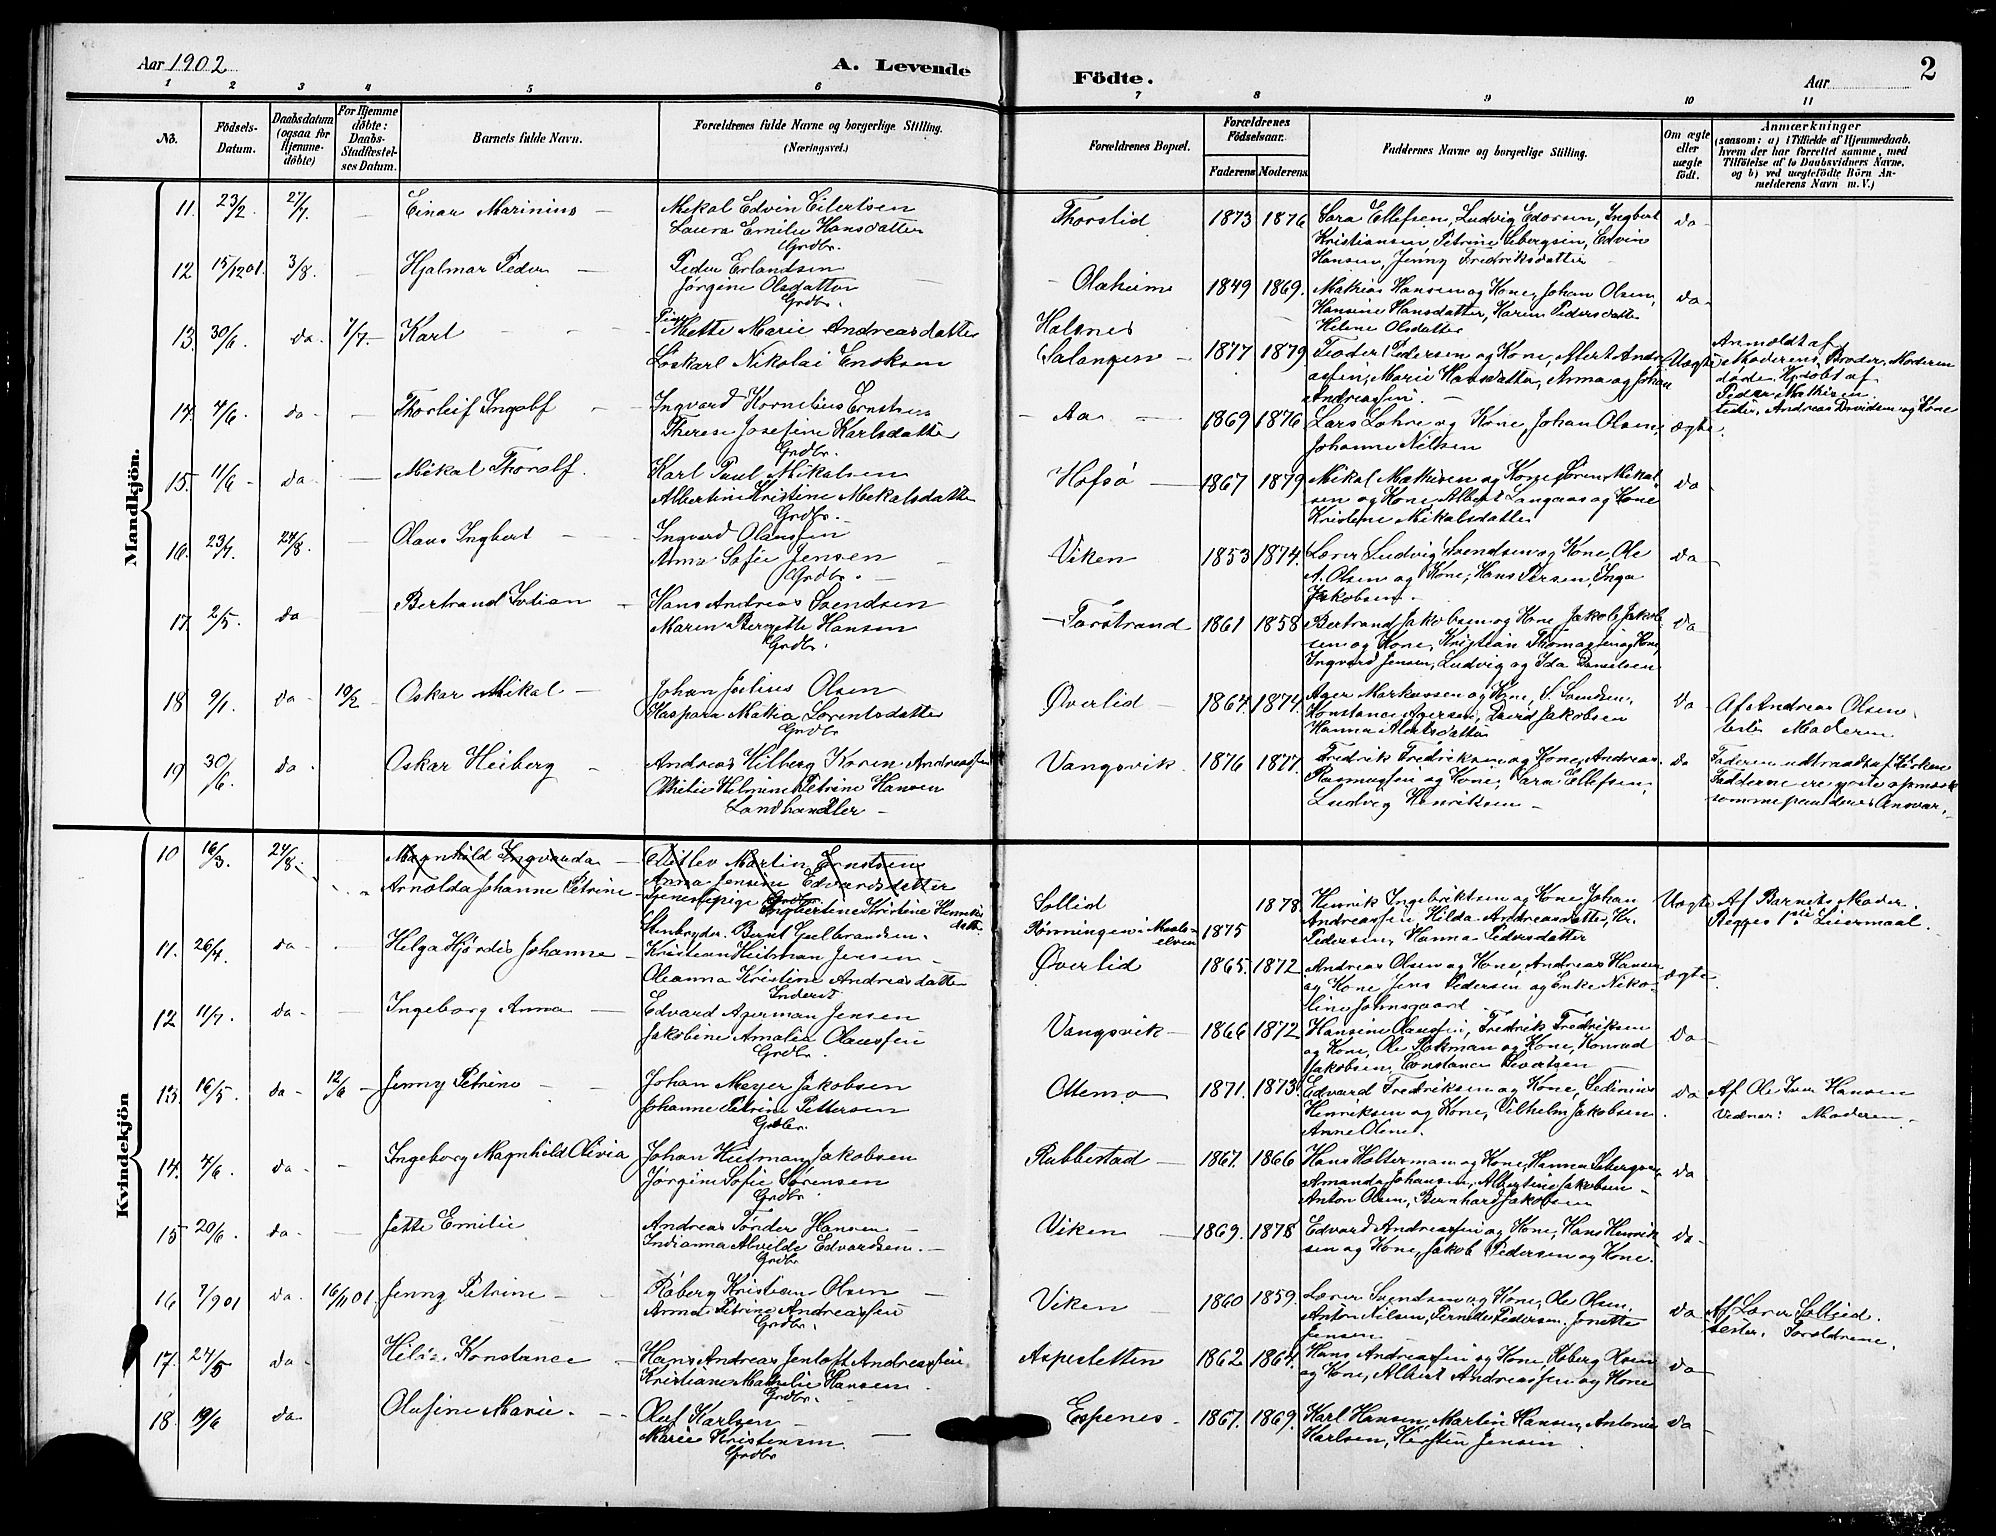 Aar 1902
A. Levende
Födte.
Aar
2
1 2 3 4 5 6 7 8 9 10 11
No.
Födsels-
Datum.
Daabsdatum
(ogsaa for
Hjemme-
döbte)
For Hjemme
döbte:
Daabs-
Stadfæstel-
ses Datum.
Barnets fulde Navn.
Forældrenes fulde Navne og borgerlige Stilling.
(Næringsvei.)
Forældrenes Bopæl.
Forældrenes
Födselsaar.
Faderens
Moderens
Faddernes Navne og borgerlige Stilling.
Om ægte
eller
uægte
födt.
Anmærkninger
(saasom: a) i Tilfælde af Hjemmedaab,
hvem der har forrettet samme, med
Tilföielse af to Daabsvidners Navne,
og b) ved uægtefödte Börn An-
melderens Navn m. V.)
Mandkjön.
11. 23/2. 27/7. — Einar Marinius —
Mikal Edvin Eilertsen
Laura Emilie Hansdatter
Grdbr.
Thorslid 1873 1876
Sara Ellefsen, Ludvig Edorsen, Ingbert
Kristiansen, Petrine Sebergsen, Edvin
Hansen, Jenny Fredriksdatter
da
12 15/12 01. 3/8. — Hjalmar Peder —
Peder Erlandsen
Jørgine Olsdatter
Grdbr.
Olaheim 1849 1869.
Mathias Hansen og Kone, Johan Olsen,
Hansine Hansdatter, Karen Pedersdatter
Helene Olsdatter
da
13. 30/6 da. 7/7 Karl
Pige Mette Marie Andreasdatter
Løskarl Nikolai Enoksen
Halsnes
Salangen 1877 1879
Teoder Pedersen og Kone, Albert Andre-
assen, Marie Hansdatter, Anna og Johan
Andreassen.
Uægte
Anmeldt af
Moderens Broder, Moderen
døde. Hj.døbt af
Peder Mathisen
Andreas Davidsen og Kone
14. 4/6. da — Thorleif Ingolf —
Ingvard Kornelius Ernstsen
Therese Josefine Karlsdatter
Grdbr.
Aa 1869 1876
Lars Lohre og Kone, Johan Olsen,
Johanne Nilsen
ægte
15. 11/6 da — Mikal Thoralf.
Karl Paul Mikalsen
Albertine Kristine Mikalsdatter
Grdbr.
Hofsø 1867 1879
Mikal Mathisen og Kone Søren Mikal-
sen og Kone Albert Langaas og Kone
Kristine Mikalsdatter
da
16. 23/7. 24/8. — Olaus Ingbert —
Ingvard Olaussen
Anna Sofie Jensen
Grdbr.
Viken 1853 1874.
Lærer Ludvig Svendsen og Kone, Ole
A. Olsen og Kone, Hans Persen, Inga
Jakobsen.
da
17. 2/5. da — Bertrand Sofian —
Hans Andreas Svendsen
Maren Bergette Hansen
Grdbr.
Forstrand 1861 1858
Bertrand Jakobsen og Kone Jakob Jakob-
sen og Kone, Kristian Thomassen og Kone,
Ingvard Jensen, Ludvig og Ida Danielsen
da
18 9/1. da 19/2 Oskar Mikal —
Johan Julius Olsen
Kaspara Matia Lorentsdatter
Grdbr
Øverlid 1864. 1874.
Ager Markussen og Kone, S. Svendsen,
Konstance Agersen, David Jakobsen
Hanna Albertsdatter
da
Af Andreas Olsen
Moderen
19 30/6. da. Oskar Heiberg —
Andreas Hilberg Koren Andreassen
Otilie Helmine Petrine Hansen
Landhandler —
Vangsvik. 1876 1877.
Fredrik Fredriksen og Kone, Andreas
Rasmussen og Kone, Sara Ellefsen,
Ludvig Henriksen —
da
Faderen udtraadt af Kirken
Kvindekjön
10 16/3. 24/8. — Magnhild Ingvarda
Arnolda Johanne Petrine
Detlev Martin Ernstsen
Anna Jensine Edvardsdatter
Grdbr.
Tjenestepige Ingbertine Kristine Henriks
datter
Stenbryder Bernt Gulbrandsen.
Sollid 1878.
Rønningen i Maals-
elven 1875
Henrik Ingebriktsen og Kone Johan
Andreassen Hilda Andreasdatter, Hr.
Pedersen, Hanna Pedersdatter
Uægte
Af Barnets Moder.
Begges 1ste Leiermaal.
11. 26/4. da — Helga Hjördis Johanne —
Kristian Heitman Jensen —
Oleanna Kristine Andreasdatter
Inderst
Øverlid 1865. 1872
Andreas Olsen og Kone, Andreas Hansen
og Kone Jens Pedersen og Enke Niko-
line Johnsgaard
ægte
12 11/7. da — Ingeborg Anna —
Edvard Agerman Jensen
Jakobine Amalia Olaussen
Grdbr.
Vangsvik 1866 1872
Hansine Olaussen, Fredrik Fredriksen
og Kone, Ole Rokman og Kone, Konrad
Jakobsen, Constance Sivertsen
da
13. 16/5. da 12/6 Jenny Petrine —
Johan Meyer Jakobsen
Johanne Petrine Pettersen
Grdbr.
Ottemo 1871. 1873.
Edvard Fredriksen og Kone, Sedinius
Henriksen og Kone, Vilhelm Jakobsen
Anne Olsen.
da
Af Ole Iver Hansen
Vidner: Moderen.
14. 4/6. da — Ingeborg Magnhild Olivia
Johan Heitman Jakobsen
Jørgine Sofie Sørensen
Grdbr.
Rubbestad 1867. 1866
Hans Holterman og Kone, Hanna Sebergsen
Amanda Johansen, Albertine Jakobsen —
Anton Olsen, Bernhard Jakobsen
da
15 20/6. da — Jette Emilie
Andreas Tønder Hansen —
Indianna Alvilde Edvardsen. —
Grdbr.
Viken 1869. 1878
Edvard Andreassen og Kone, Hans Henrik-
sen og Kone, Jakob Pedersen og Kone.
da
16 7/9 01 da 16/11 01. Jenny Petrine —
Roberg Kristian Olsen —
Anna Petrine Andreassen
Grdbr.
Viken 1860 1859.
Lærer Svendsen og Kone, Ole Olsen,
Anton Nilsen, Pernede Pedersen, Jonette
Jensen
da
Af Lærer Solleid.
Forældrene.
17. 24/5 da — Hilda Konstance —
Hans Andreas Jentoft Andreassen
Kristiane Mathilie Hansen.
Grdbr.
Aspestetten 1862 1864.
Hans Andreassen og Kone Roberg Olsen
og Kone, Albert Andreassen og Kone
da
18 19/6 da Olufine Marie. —
Oluf Karlsen —
Marie Kristensen.
Grdbr
Espenes. 1867. 1869.
Karl Hansen, Martin Hansen, Antonie
Karlsen, Kirsten Jensen.
da